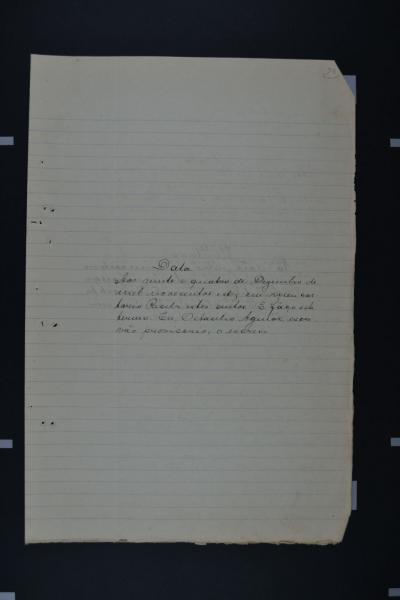 23
Data
Aos vinte e quatro de Dezembro de
mil novecentos e dez, em meu car
torio Recebi estes autos. E faço este
termo. Eu, Octavilio Aguiar, escri
vão provisorio, o escrevi